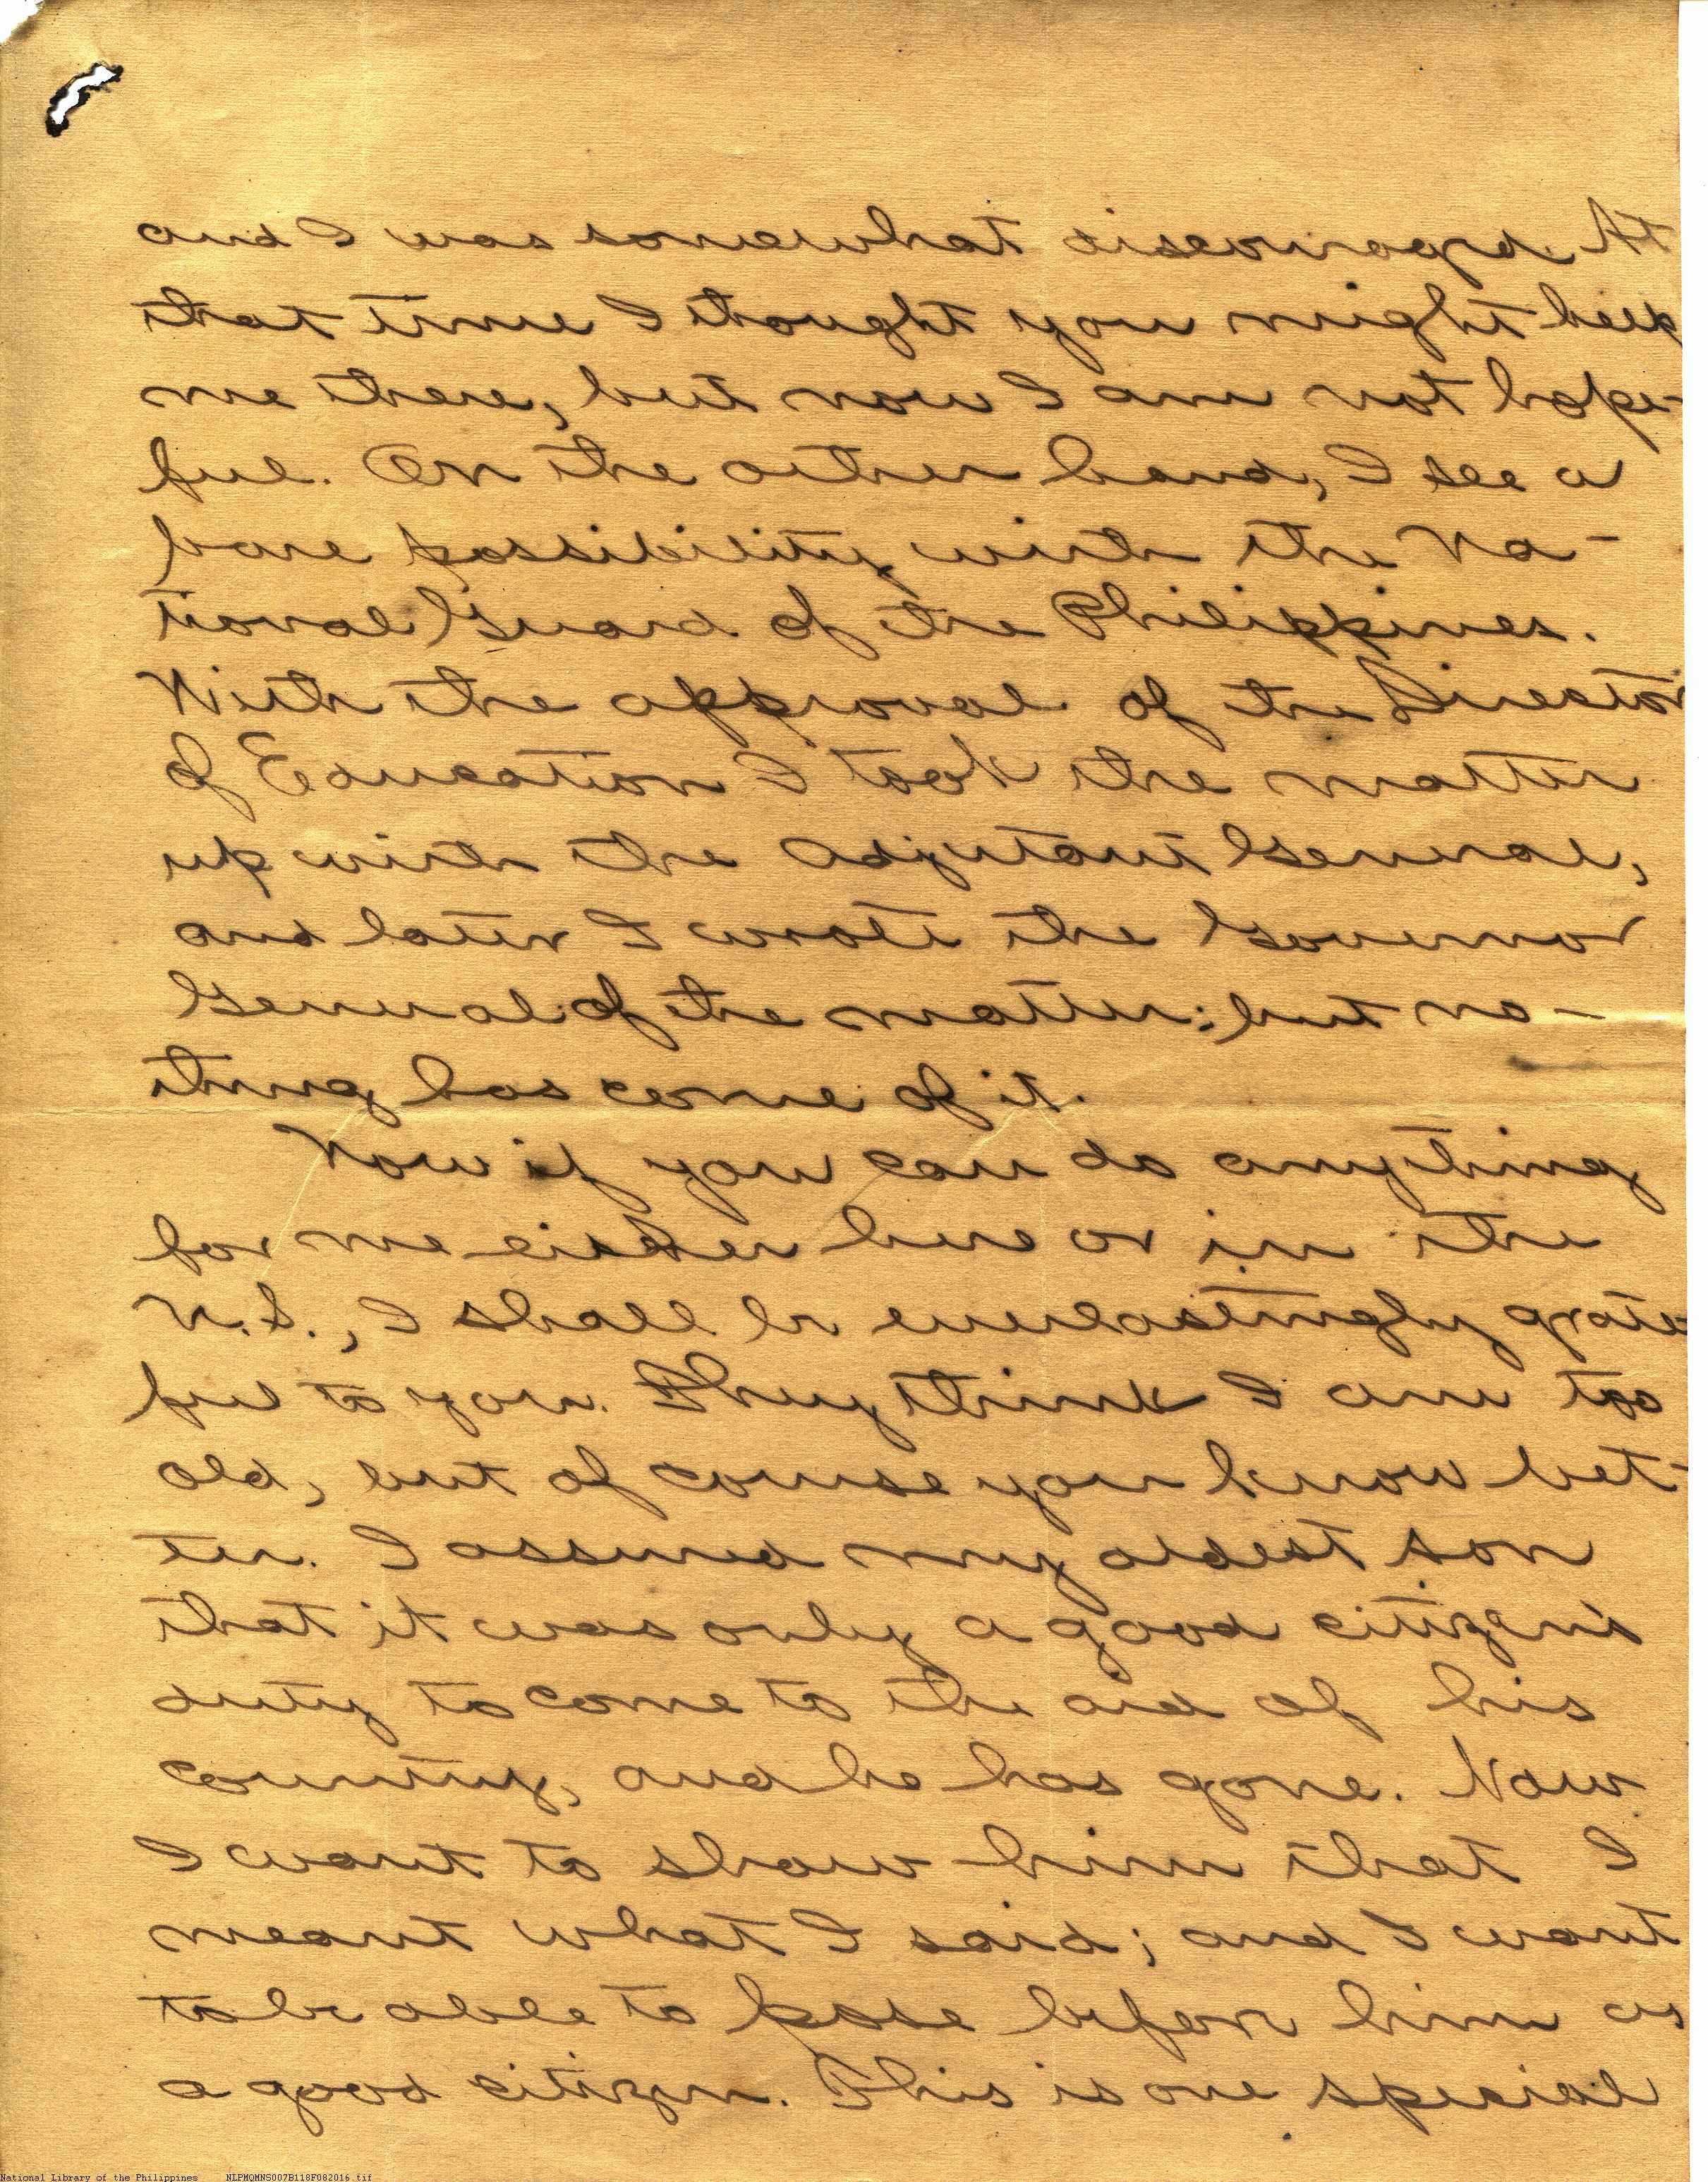 and I was somewhat discouraged. At
that time I thought you might help
me there, but now I am not hope-
ful. On the other hand, I see a
bare possibility with the Na-
tional Guard of the Philippines.
With the approval of the Director
of Education I took the matter
up with the Adjutant General,
and later I wrote the Governor
General of the matter; but no-
thing has come of it.
Now if you can do anything
for me either here or in the
U.S., I shall be everlastingly grate-
ful to you. They think I am too
old, but of course you know bet-
ter. I assured my oldest son
that it was only a good citizen's
duty to come to the aid of his
country, and he has gone. Now
I want to show him that I
meant what I said; and I want
to be able to pose before him as
a good citizen. This is one special
National Library of the Philippines NLPMQMNS007B118F082016.tif